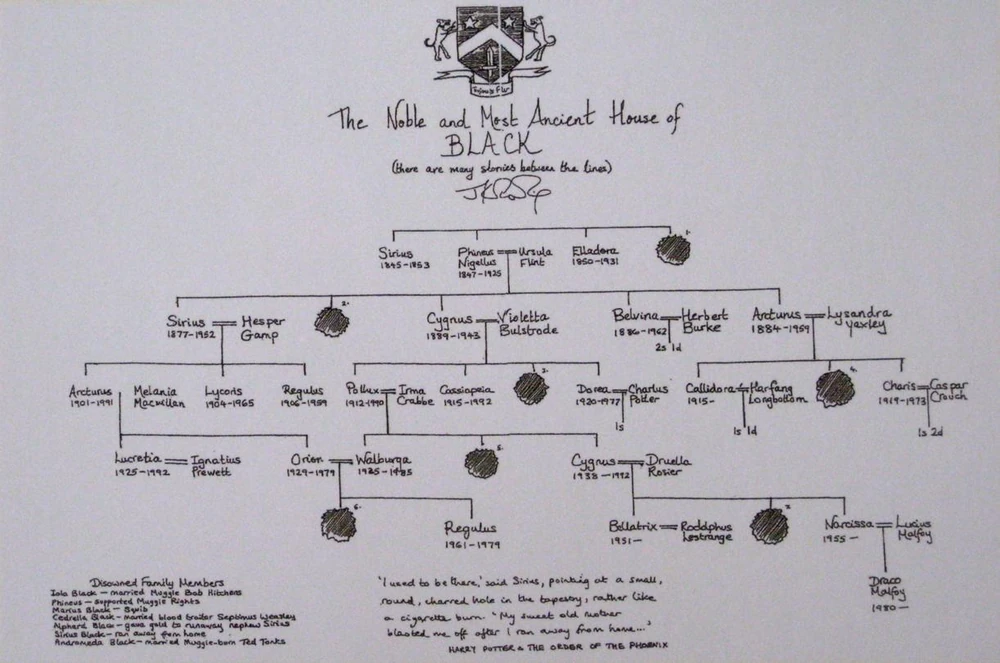 Toujours Pur
The Noble and Most Ancient House of
BLACK
(there are many stories between the lines)
1.
Sirius Phineus Nigellus Ursula Flint Elladora
1845-1853 1847-1925 1850-1931
2.
Sirius Hesper Gamp Cygnus Violetta Bulstrode Belvina Herbert Burke Arcturus Lysandra Yaxley
1877-1952 1889-1943 1886-1962 1884-1959
2s 1d
3. 4.
Arcturus Melania Macmillan Lycoris Regulus Pollux Irma Crabbe Cassiopeia Dorea Charlus Potter Callidora Harfang Longbottom Charis Caspar Crouch
1901-1991 1904-1965 1906-1959 1912-1990 1915-1992 1920-1977 1915- 1919-1973
1s 1s 1d 1s 2d
5.
Lucretia Ignatius Prewett Orion Walburga Cygnus Druella Rosier
1925-1992 1929-1979 1925-1985 1938-1992
6. 7.
Regulus Bellatrix Rodolphus Lestrange Narcissa Lucius Malfoy
1961-1979 1951- 1955-
Draco
Malfoy
1980-
Disowned Family Members
Iola Black - married Muggle Bob Hitchens
Phineus - supported Muggle Rights
Marius Black - Squib
Cedrella Black - married blood traitor Septimus Weasley
Alphard Black - gave gold to runaway nephew Sirius
Sirius Black - ran away from home
Andromeda Black - married Muggle-born Ted Tonks
'I used to be there,' said Sirius, pointing at a small,
round, charred hole in the tapestry, rather like
a cigarette burn. 'My sweet old mother
blasted me off after I ran away from home...'
HARRY POTTER & THE ORDER OF THE PHOENIX